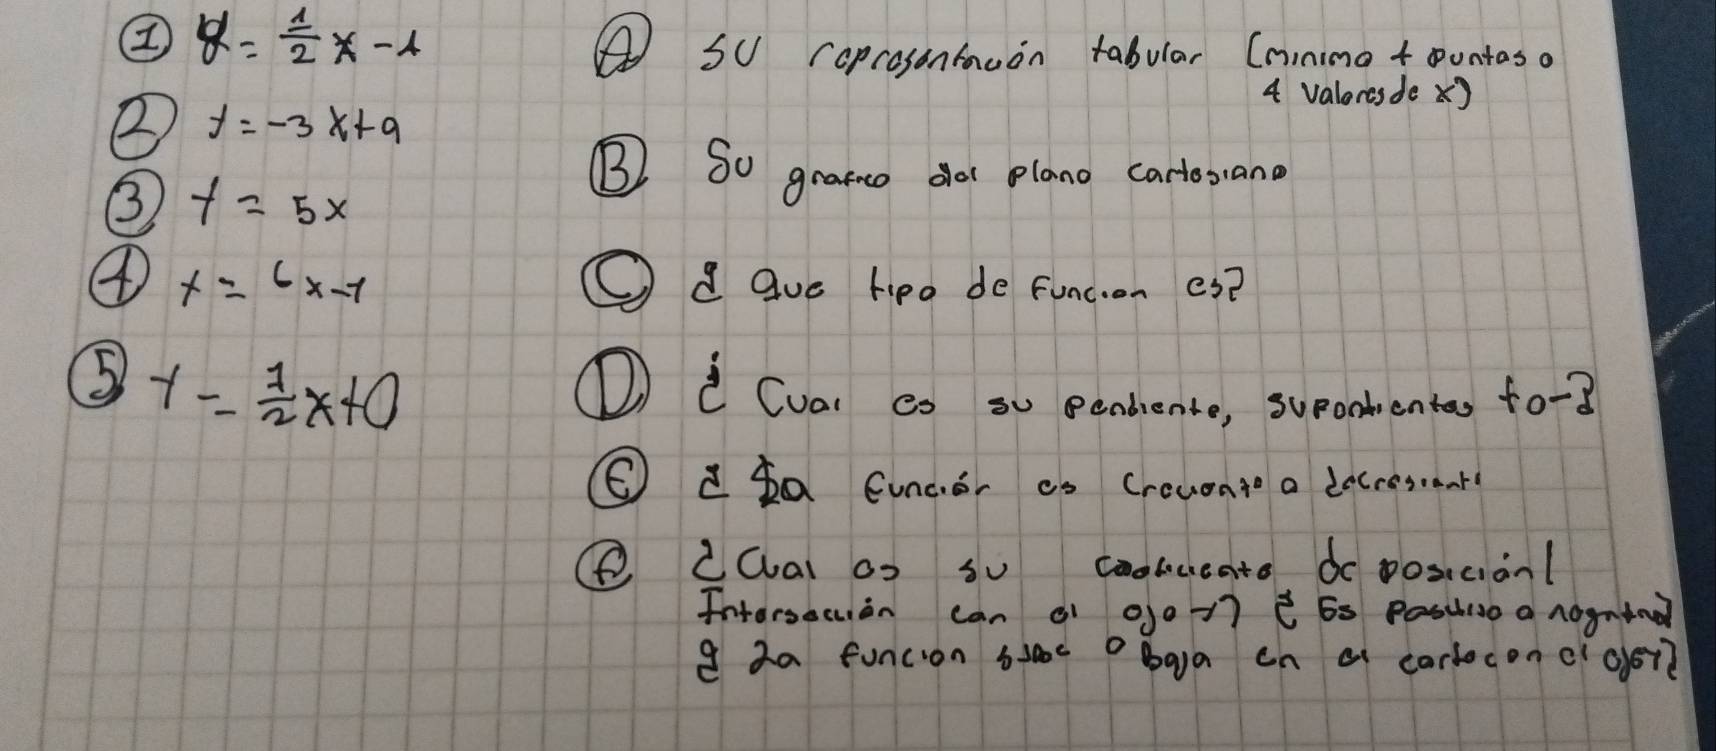 ① y = 1/2 x - 1
② y = -3x+9
③ y = 5x
④ y = 6x-1
⑤ y = 1/2 x+0
Ⓐ SU representación tabular (minimo 4 puntos o
4 valores de x)
Ⓑ Su grafico del plano cartesiano
Ⓒ ¿ Que tipo de Funcion es?
Ⓓ ¿ Cual es su pendiente, su pendientes + o - ?
Ⓔ ¿ La Función es Creciente o decreciente
Ⓕ ¿ Cual es su coeficiente de posición /
Intersección con el eje y? ¿ Es positivo o negativo?
¿ La funcion sube o baja en el corte con el eje y?